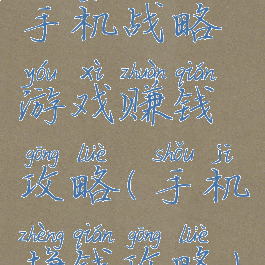 手机战略
yóu xì zhuàn qián
游戏赚钱
gōng lüè shǒu jī
攻略(手机
zhèng qián gōng lüè
挣钱攻略)